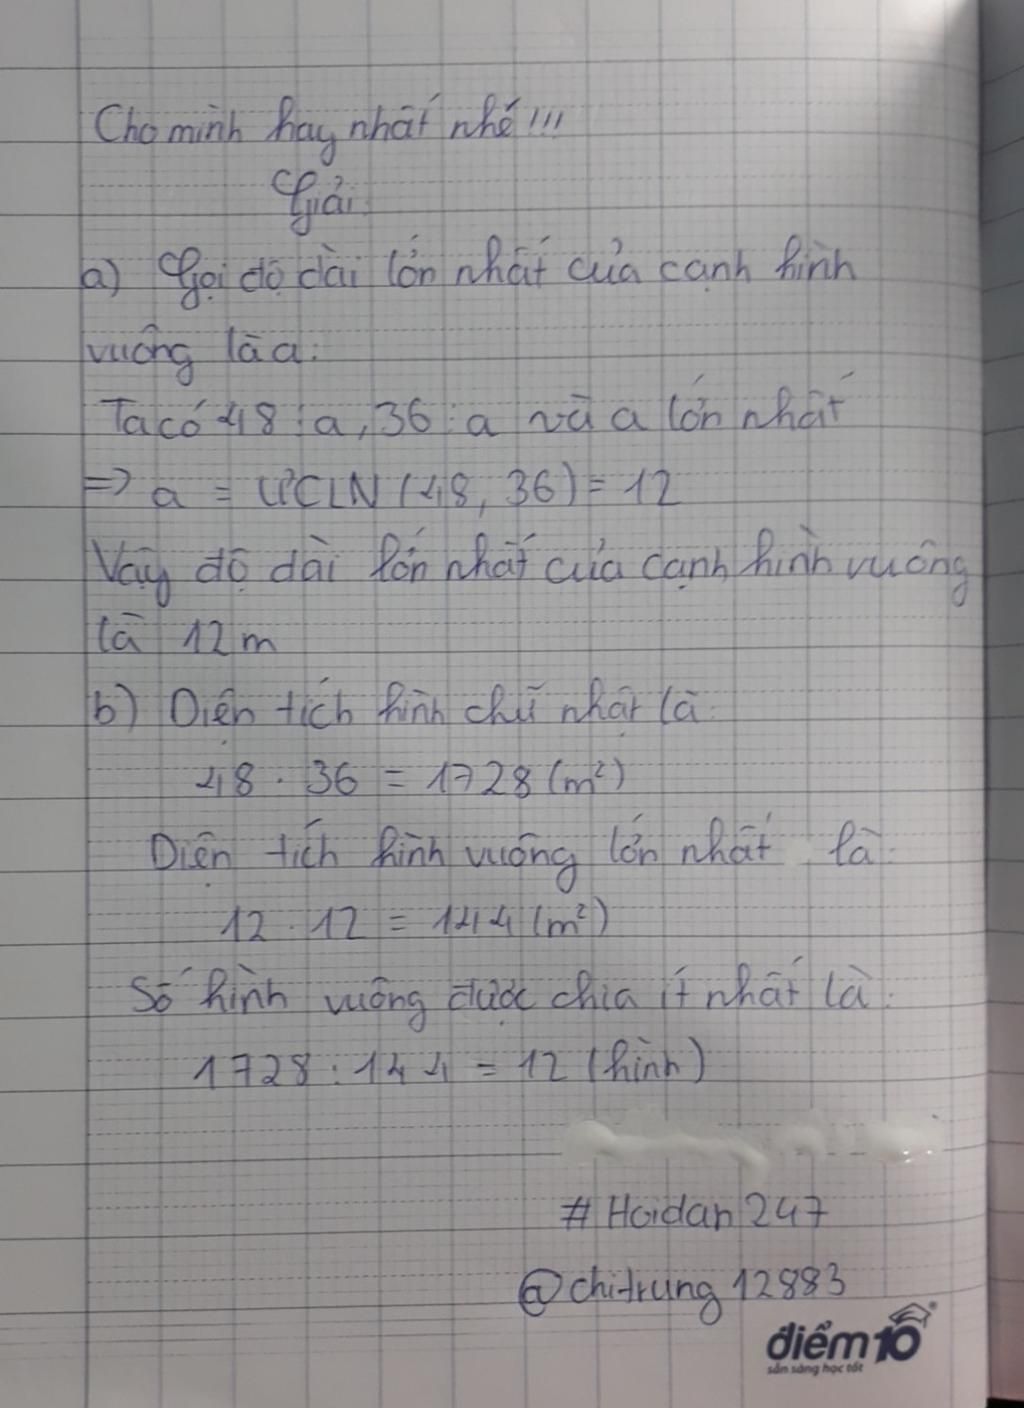 Cho mình hay nhất nhé!!!
Giải
a) Gọi độ dài lớn nhất của cạnh hình
vuông là a.
Ta có 48 ⋮ a, 36 ⋮ a và a lớn nhất
=> a = ƯCLN (48, 36) = 12
Vậy độ dài lớn nhất của cạnh hình vuông
là 12 m
b) Diện tích hình chữ nhật là:
48 . 36 = 1728 (m²)
Diện tích hình vuông lớn nhất là:
12 . 12 = 144 (m²)
Số hình vuông được chia ít nhất là:
1728 : 144 = 12 (hình)
# Hoidan 247
@chitrung 12883
điểm10
sẵn sàng học tốt